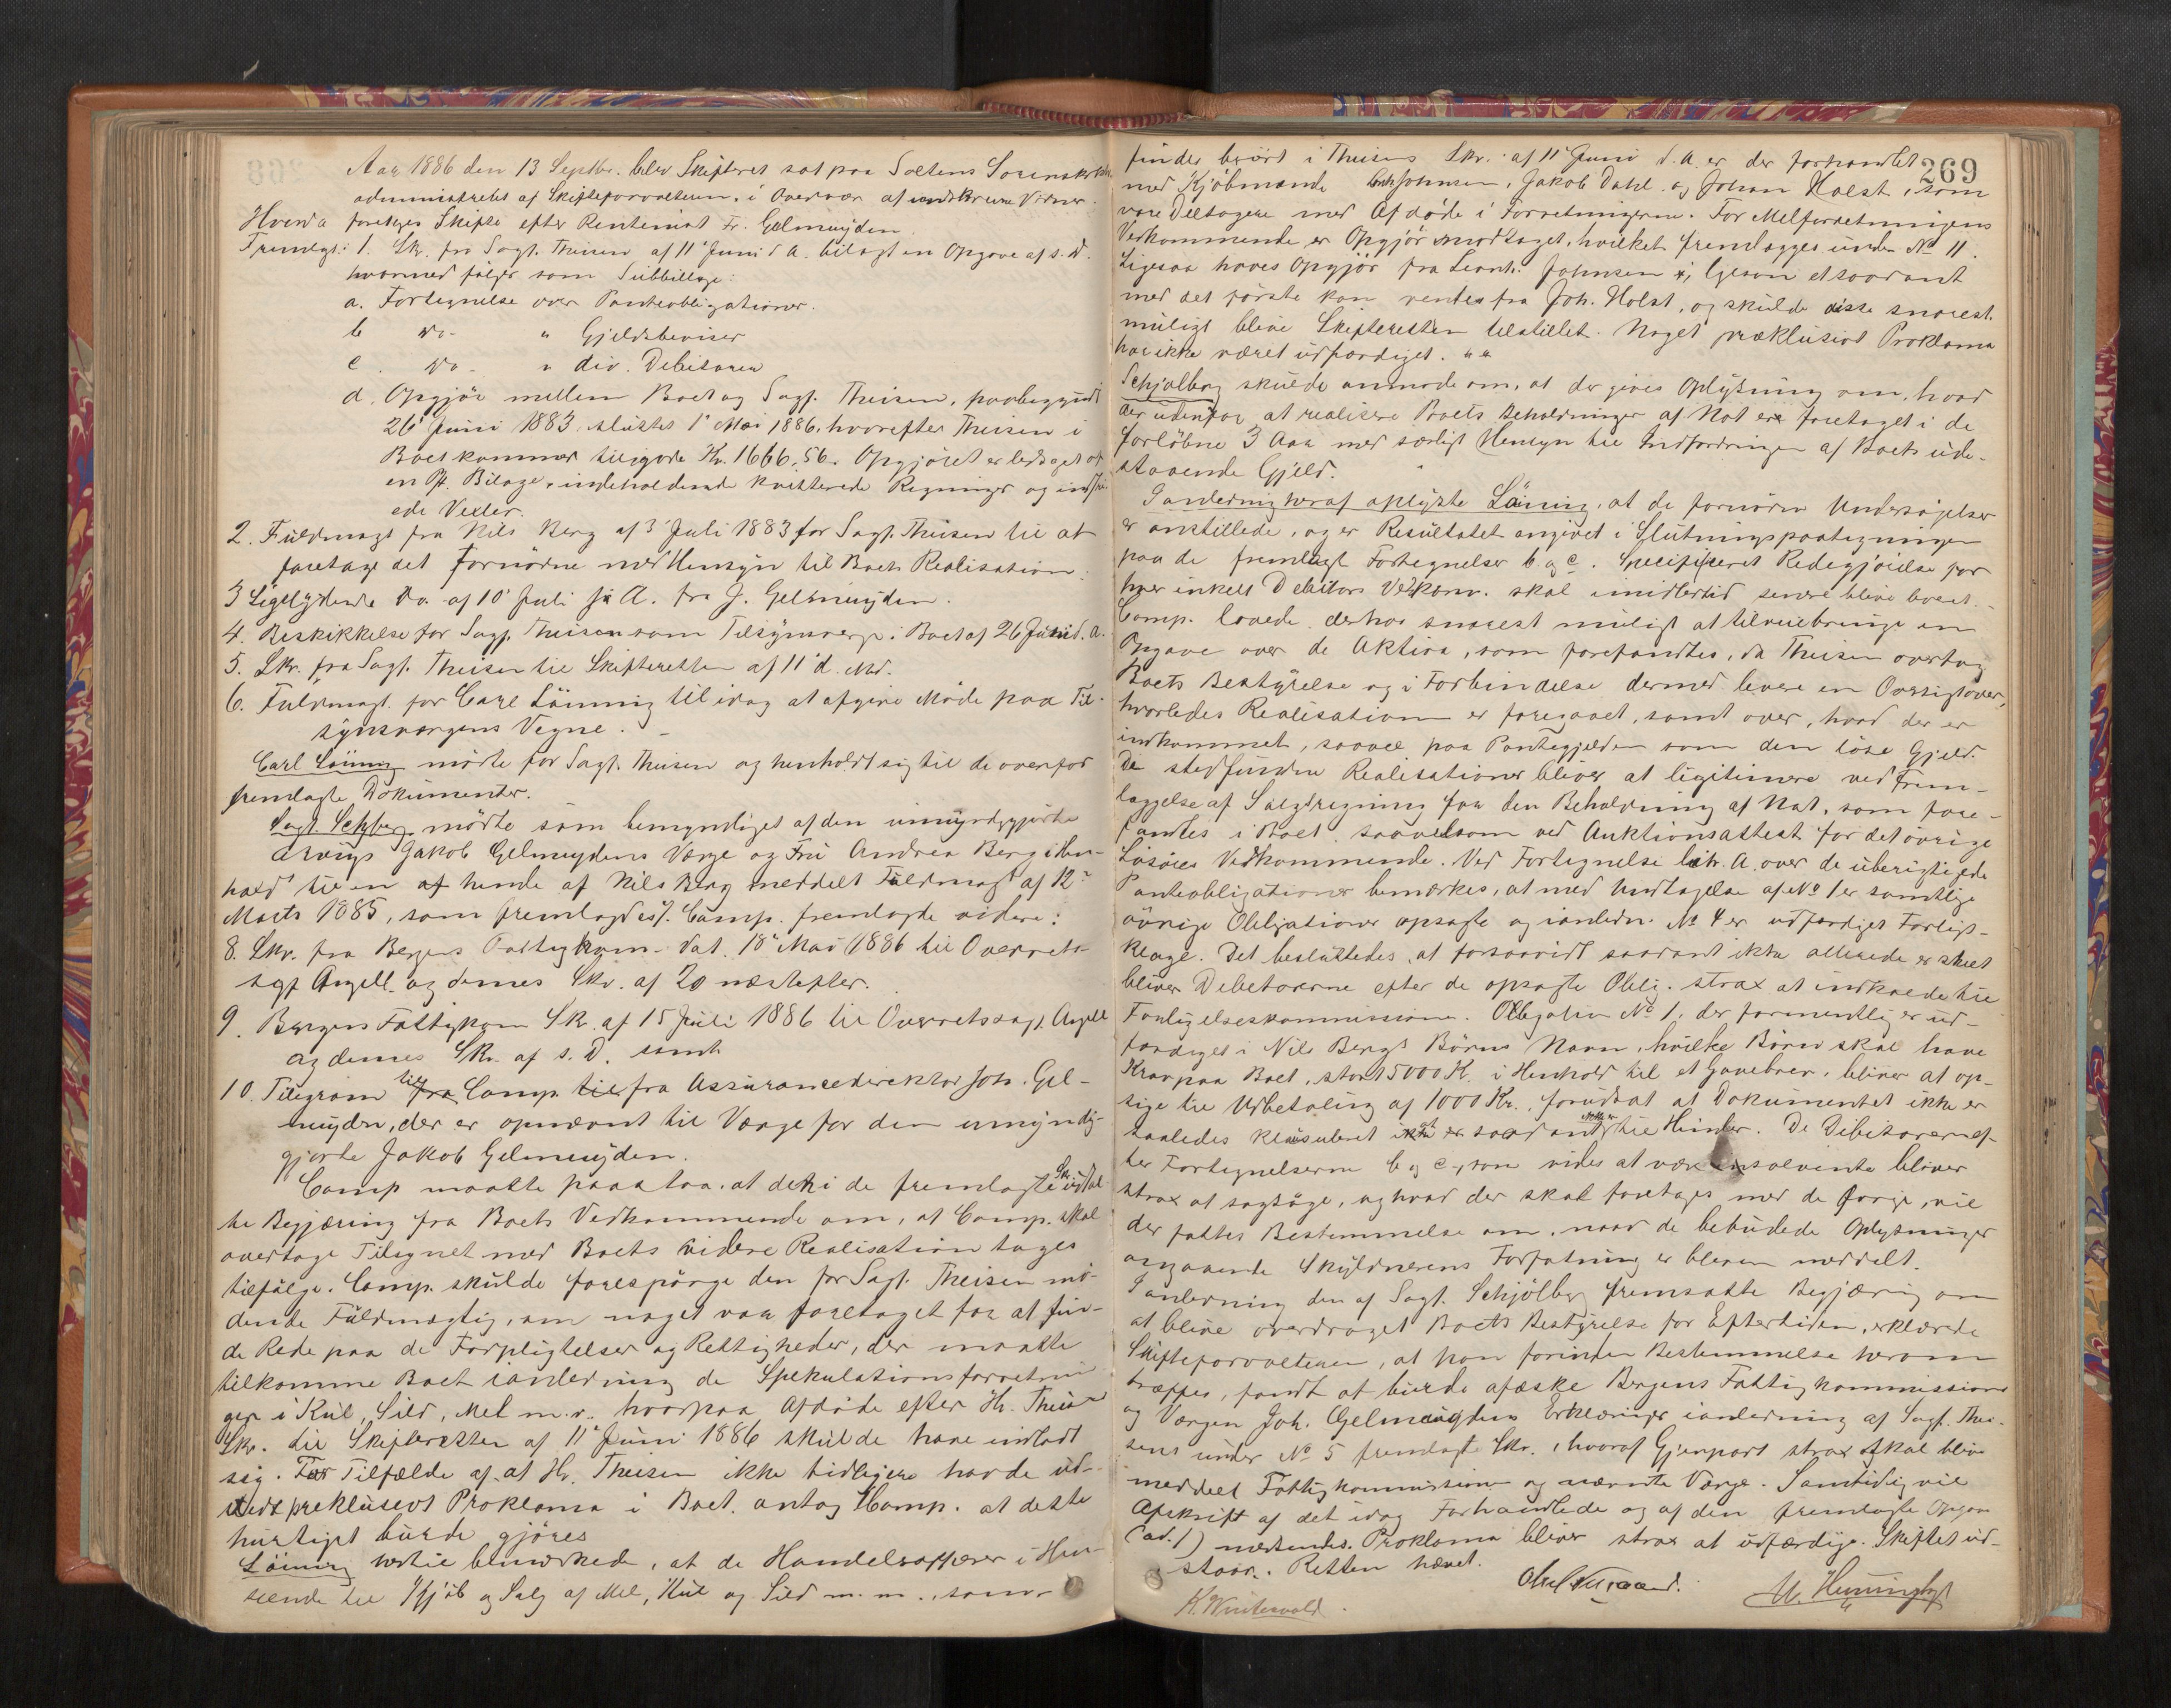 Aar 1886 den 13 Septbr. blev Skifteret sat paa Saltens Sorenskr
administreret af Skifteforvalteren, i Overvær af undskrevne Vidner.
Hvorda foretoges Skifte efter Rentenist Fr. Gelmuyden.
Fremlagt: 1. Skr. fra Sagf. Theisen af 11' Juni d A. bilagt en Opgave af s. D.
hvormed følger som Subbillage:
a. Fortegnelse over Panteobligationer.
b Do - " Gjeldsbeviser
c. Do - " div. Debitorer
d. Opgjör mellem Boet og Sagf. Theisen, paabegyndt
26' Juni 1883, sluttet 1' Mai 1886, hvorefter Theisen i
Boet kommer tilgode Kr. 1666,56. Opgjöret er ledsaget af
en Pk. Bilage, indeholdende kvitterede Regninger og indfri
ede Vexler.
2. Fuldmagt fra Nils Berg af 3' Juli 1883 for Sagf. Theisen til at
foretage det Fornödne med Hensyn til Boets Realisation.
3 Ligelydende Do. af 10' Juli s. A. fra J. Gelmuyden.
4. Beskikkelse for Sagf. Theisen som Tilsynsverge i Boet af 26 Juni d. A.
5. Skr. fra Sagf. Theisen til Skifteretten af 11' d. Md.
6. Fuldmagt for Carl Lönning til idag at afgive Möde paa Til-
synsvergens Vegne. -
Carl Lönning mödte for Sagf. Theisen og henholdt sig til de ovenfor
fremlagte Dokumenter.
Sagf. Schjølberg mödte som bemyndiget af den umyndiggjorte
arvings Jakob Gelmuydens Værge og Fru Andrea Berg i Hen-
hold til en af hende af Nils Berg meddelt Fuldmagt af 12'
Marts 1885, som fremlagdes 7. Comp. fremlagde videre:
8. Skr. fra Bergens Fattigkom. dat. 18' Mai 1886 til Overrets-
sagf Angell og dennes Skr. af 20 næstefter.
9. Bergens Fattigkom Skr. af 15 Juli 1886 til Overretssagf. Angell
og dennes Skr. af s. D. samt
10. Telegram til fra Comp. til fra Assurancedirektör Joh. Gel-
muyden, der er opnævnt til Værge for den umyndig-
gjorte Jakob Gelmuyden.
Comp maatte paastaa, at den i de fremlagte Skr. udtal
te Begjæring fra Boets Vedkommende om, at Comp. skal
overtage Tilsynet med Boets videre Realisation tages
tilfölge. Comp. skulde forespörge den for Sagf. Theisen mö-
dende Fuldmægtig, om noget var foretaget for at fin-
de Rede paa de Forpligtelser og Rettigheder, der maatte
tilkomme Boet ianledning de Spekulationsforretnin
ger i Kul, Sild, Mel m. v. hvorpaa Afdöde efter Hr. Theisens
Skr. til Skifteretten af 11' Juni 1886 skulde have indladt
sig. For Tilfælde af at Hr. Theisen ikke tidligere havde ud-
stedt preklusivt Proklama i Boet, antog Comp. at dette
hurtigst burde gjöres
Lönning hertil bemærkede, at de Handelsaffærer i Hen-
seende til Kjöb og Salg af Mel, Kul og Sild m. m., som
269
findes berört i Theisens Skr. af 11' Juni d. A. er der forhandlet
med Kjöbmænde Johnsen, Jakob Dahl og Johan Holst, som
vare Deltagere med Afdöde i Forretningerne. For Melforretningens
Vedkommende er Opgjör modtaget, hvilket fremlægges under No 11.
Ligesaa haves Opgjör fra Leonh. Johnsen, ligesom et saadant
med det förste kan ventes fra Joh. Holst, og skulde disse snarest
muligt blive Skifteretten tilstillet. Noget præklusivt Proklama
har ikke været udfærdiget. "
Schjølberg skulde anmode om, at der gives Oplysning om, hvad
der udenfor at realisere Boets Beholdninger af Not er foretaget i de
forlöbne 3 Aar med særligt Hensyn til Indfordringen af Boets ude-
staaende Gjeld.
Ianledning heraf oplyste Lönning, at de fornödne Undersögelser
er anstillede, og er Resultatet angivet i Slutningspaategningen
paa de fremlagt Fortegnelser b og c. Specificeret Redegjörelse for
hver enkelt Debitors Vedkom. skal imidlertid senere blive leveret.
Comp. lovede derhos snarest muligt at tilveiebringe en
Opgave over de Aktiva, som forefandtes, da Theisen overtog
Boets Bestyrelse og i Forbindelse dermed levere en Oversigt over,
hvorledes Realisationen er foregaaet, samt over, hvad der er
indkommet, saavel paa Pantegjelden som den löse Gjeld.
De stedfundne Realisationer bliver at legitimere ved Frem-
læggelse af Salgsregning for den Beholdning af Not, som fore-
fandtes i Boet saavelsom ved Auktionsattest for det övrige
Lösöres Vedkommende. Ved Fortegnelse Litr. A over de uberigtigede
Panteobligationer bemærkes, at med Undtagelse af No 1 er samtlige
övrige Obligationer opsagte og ianledn. No 4 er udfærdiget Forligs-
klage. Det besluttedes, at forsaavidt saadant ikke allerede er skeet
bliver Debitorerne efter de opsagte Oblig. strax at indkalde til
Forligelseskommissionen. Obligation No 1, der formentlig er ud-
færdiget i Nils Bergs Börns Navn, hvilke Börn skal have
Krav paa Boet, stort 5000 K. i Henhold til et Gavebrev, bliver at op-
sige til Udbetaling af 1000 Kr., forudsat at Dokumentet ikke er
saaledes klausuleret at saadant er til Hinder. De Debitorer ef-
ter Fortegnelserne b og c, som vides at være insolvente bliver
strax at sagsöge, og hvad der skal foretages med de övrige, vil
der fattes Bestemmelse om, naar de bebudede Oplysninger
angaaende Skyldnerens Forfatning er bleven meddelt.
Ianledning den af Sagf. Schjølberg fremsatte Begjæring om
at blive overdraget Boets Bestyrelse for Eftertiden, erklærede
Skifteforvalteren, at han forinden Bestemmelse herom
træffes, fandt at burde afæske Bergens Fattigkommission
og Værgen Joh. Gelmuydens Erklæringer ianledning af Sagf. Thei-
sens under No 5 fremlagte Skr., hvoraf Gjenpart strax skal blive
meddelt Fattigkommissionen og nævnte Værge. Samtidig vil
Afskrift af det idag Forhandlede og af den fremlagte Opgave
(ad. 1) medsendes. Proklama bliver strax at udfærdige. Skiftet ud-
staar. Retten hævet.
K. Wintervold.